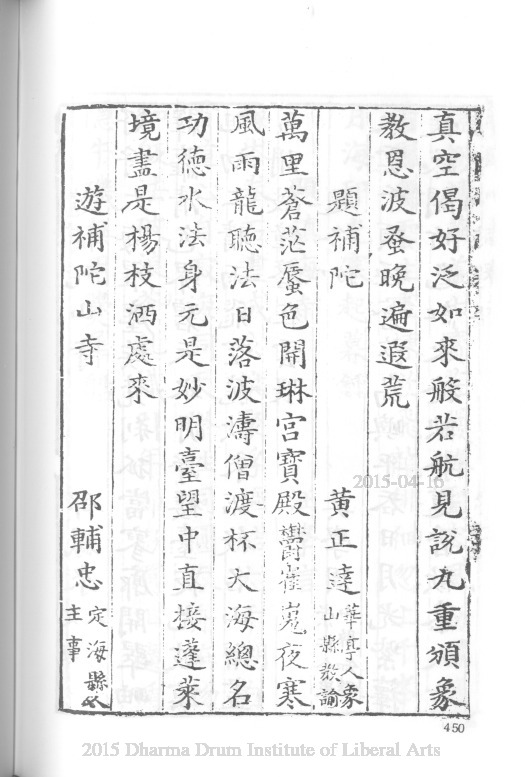 真空偈好泛如來般若航見說九重頒象
教恩波蚤晚遍遐荒
題補陀 黃正達 華亭人象山縣教諭
萬里蒼茫蜃色開琳宮寶殿鬱崔嵬夜寒
風雨龍聽法日落波濤僧渡杯大海總名
功德水法身元是妙明臺望中直接蓬萊
境盡是楊枝洒處來
遊補陀山寺 邵輔忠 定海縣人主事
450
2015-04-16
2015 Dharma Drum Institute of Liberal Arts